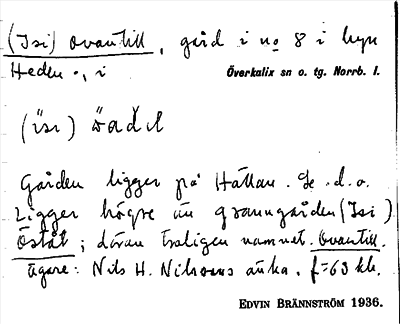 (Isi) Ovantill, gård i no 8 i byn
Heden, i Överkalix sn o. tg. Norrb. l.
(isi)
Gården ligger på Hättan. Se d. o.
Ligger högre än granngården (Isi)
Öståt; därav troligen namnet Ovantill.
Ägare: Nils H. Nilssons änka. f=63 kk.
EDVIN BRÄNNSTRÖM 1936.